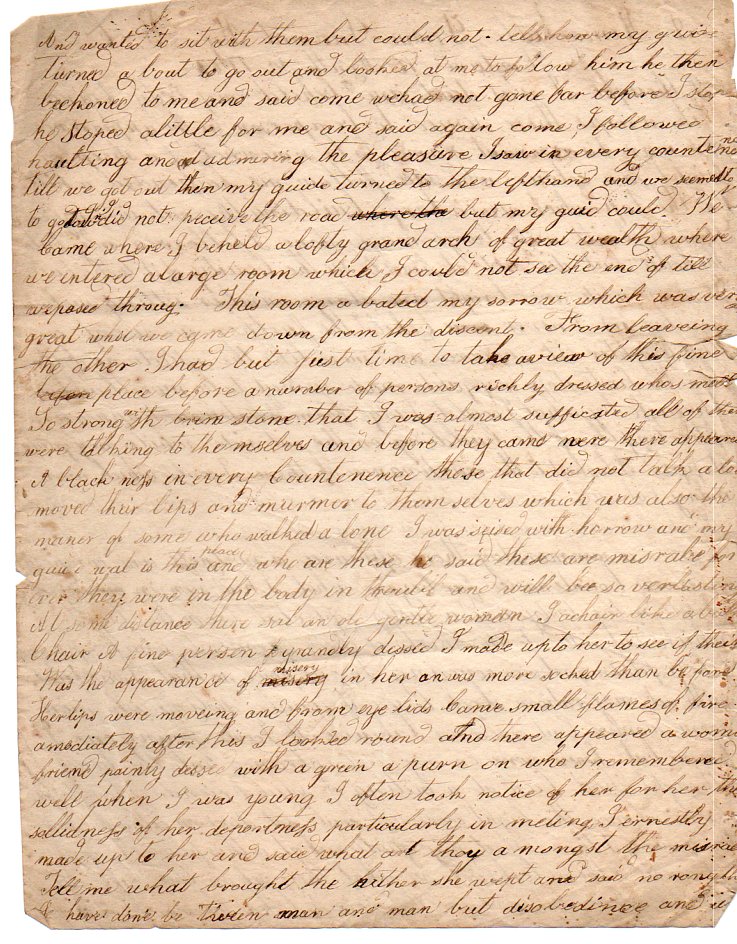 And wanted to sit with them but could not. tell how my guide
turned a bout to go out and looked at me to follow him he then
beckoned to me and said come we had not gone far before I stop
he stoped a little for me and said again come I followed
haulting and admireing the pleasure I saw in every countenance
till we got out then my guide turned to the left hand and we seemed to
to go down I did not perceive the road where the but my guid could. We
Came where I beheld a lofty grand arch of great wealth where
we intered a large room which I could not see the end of till
we passed throug. This room a bated my sorrow which was very
great whilst we came down from the discent. From leaveing
the other I had but just time to take a view of this fine
place before a number of persons richly dressed whos
So strong with brimstone that I was almost sufficated all of them
were talking to themselves and before they came nere there appeared
A black ness in every Countenence those that did not talk a loud
moved their lips and murmer to them selves which was also the
maner of some who walked a lone I was seised with horrow and my
guide wat is this place and who are these he said these are misrabe for
ever they were in the body in treubl and will bee so everlasting
At some distance there sat an old gentle woman I a chair like a
Chair A fine person & grandly dressed I made up to her to see if their
Was the appearance of misery misery in her an was more socked than before
Her lips were moveing and from eye lids came small flames of fire
amediately after this I looked round and there appeared a woman
friend painly dessed with a green a purn on who I remembered
well when I was young I often took notice of her for her the
sollidness of her deportness particularly in meting I ernestly
made up to her and said what art thou a mongst the misrae
Tell me what brought the hither she wept and said no rong
I have done be tween man and man but disobedince and